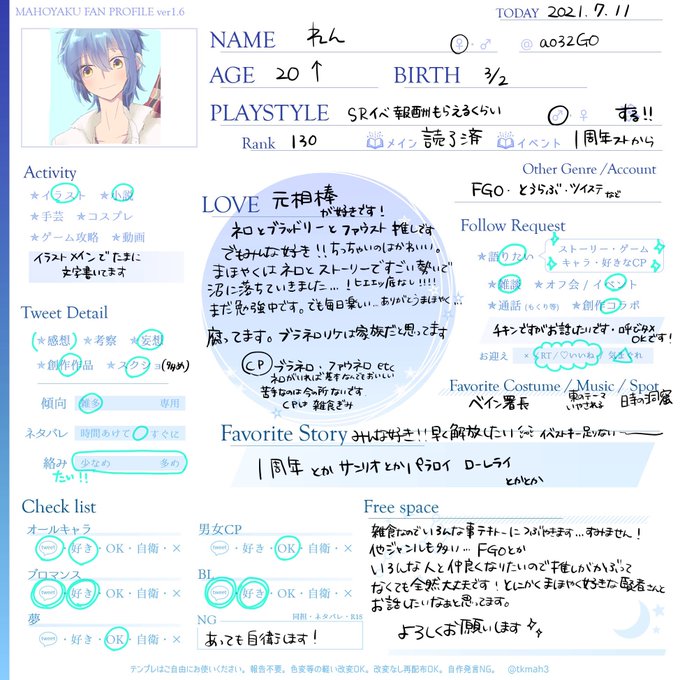 MAHOYAKU FAN PROFILE ver1.6
TODAY 2021.7.11
NAME れん ♀・♂ @ a032GO
AGE 20↑ BIRTH 3/2
PLAYSTYLE SRイベ報酬もらえるくらい ♂・♀ する!!
Rank 130 メイン 読了済 イベント 1周年ストから
Activity
★イラスト ★小説
★手芸 ★コスプレ
★ゲーム攻略 ★動画
イラストメインでたまに
文字書いてます
Tweet Detail
(★感想) ★考察 ★妄想
★創作作品 ★スクショ(多め)
傾向 雑多 専用
ネタバレ 時間あけて すぐに
絡み 少なめ 多め
たい!!
LOVE 元相棒
が好きです!
ネロとブラッドリーとファウスト推しです
でもみんな好き!!ちっちゃいのはかわいい。
まほやくはネロとストーリーですごい勢いで
沼に落ちていきました…!ヒエッ底なし!!!!
まだ勉強中です。でも毎日楽しい…ありがとうまほやく…
腐ってます。ブラネロリケは家族だと思ってます
CP ブラネロ・ファウネロ etc
ネロがいれば基本なんでもおいしい
苦手なのは今の所ないです
CPは雑食ぎみ
Other Genre /Account
FGO・とうらぶ・ツイステ など
Follow Request
★語りたい ストーリー・ゲーム
キャラ・好きなCP
★雑談 ★オフ会 / イベント
★通話 (もくり等) ★創作コラボ
チキンですがお話したいです・呼びタメ
OKです!
お迎え × RT/♡いいね 気まぐれ
Favorite Costume / Music / Spot
ベイン署長 東のテーマ
いやされる 日手の洞窟
Favorite Story みんな好き!!早く解放したい イベストキー足りない
1周年とかサンリオとかパラロイ ローレライ
とかとか
Check list
オールキャラ
tweet・好き・OK・自衛・×
男女CP
tweet・好き・OK・自衛・×
ブロマンス
tweet・好き・OK・自衛・×
BL
tweet・好き・OK・自衛・×
夢
tweet・好き・OK・自衛・×
NG 同担・ネタバレ・R18
あっても自衛します!
Free space
雑食なのでいろんな事テキトーにつぶやきます…すみません!
他ジャンルも多い… FGOとか
いろんな人と仲良くなりたいので推しがかぶって
なくても全然大丈夫です!とにかくまほやく好きな賢者さんと
お話したいなぁと思ってます。
よろしくお願いします
テンプレはご自由にお使いください。報告不要。色変等の軽い改変OK。改変なし再配布OK。自作発言NG。 @tkmah3